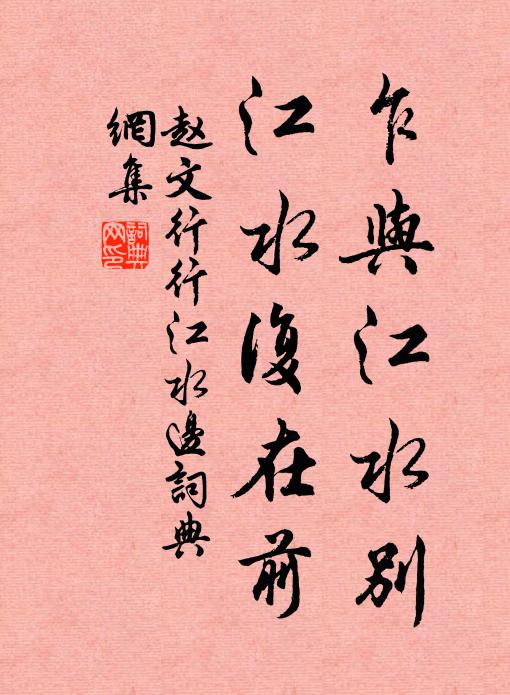 乍與江水別
江水復在前
赵文行行江水邊詞典
網集
詞典
网印